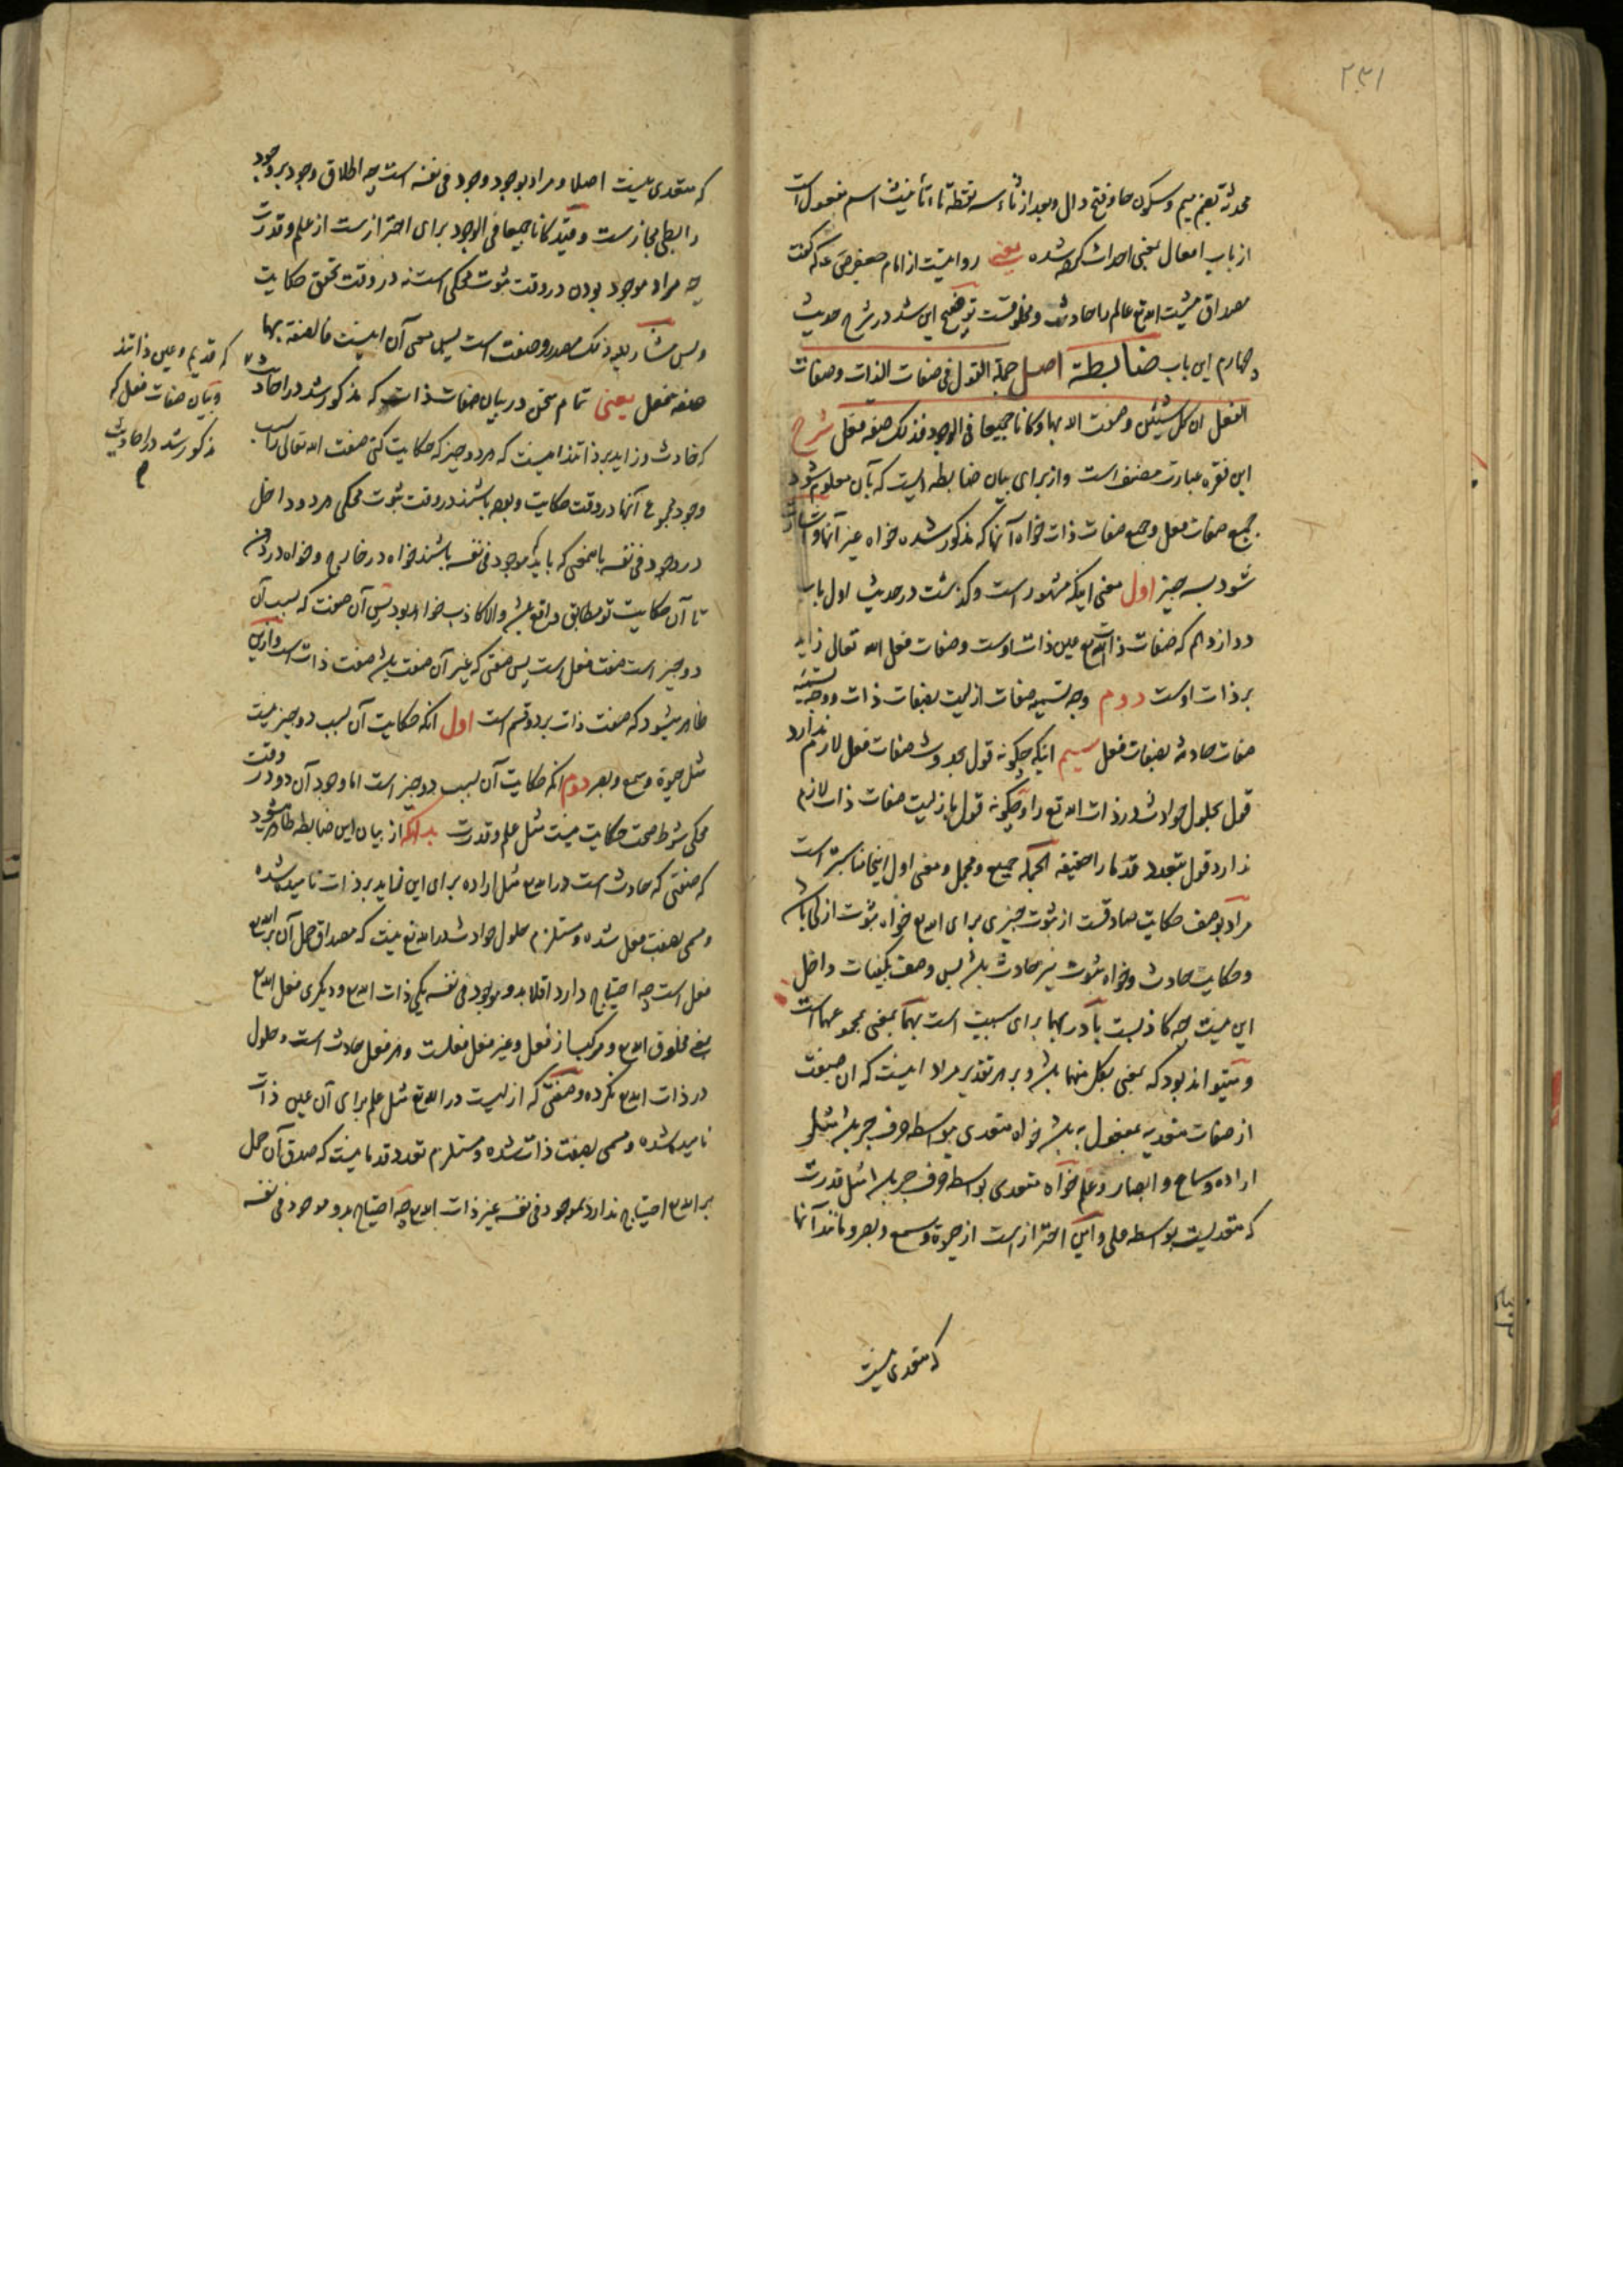 ۲۳۱
محدثة بضم میم و سکون حا و فتح دال و بعد از ثاء سه نقطه تاء تأنیث اسم مفعول است
از باب افعال بمعنی احداث کرده شده یعنی روایتست از امام جعفر ص ع که گفت
مصداق مشیت الله تع عالم را حادث و مخلوقست توضیح این شد در شرح حدیث
چهارم این باب ضابطة اصل جملة القول فی صفات الذات و صفات
الفعل ان کل شیئین وصفت الله بهما و کانا جمیعا فی الوجود فذلک صفة فعل شرح
این فقره عبارت مصنف است و از برای بیان ضابطه ایست که بآن معلوم شود
جمیع صفات فعل و جمیع صفات ذات خواه آنها که مذکور شده خواه غیر آنها و اشارت
شود بسه چیز اول معنی اینکه مشهور است و گذشت در حدیث اول باب
دوازدهم که صفات ذات الله تع عین ذات اوست و صفات فعل الله تعالی زاید
بر ذات اوست دوم وجه تسمیه صفات ازلیت بصفات ذات و وجه تسمیه
صفات حادثه بصفات فعل سیم اینکه چگونه قول بحدوث صفات فعل لازم ندارد
قول بحلول حوادث در ذات الله تع را و چگونه قول بازلیت صفات ذات لازم
ندارد قول بتعدد قدما را حقیقه الجملة جمیع و مجمل و معنی اول اینجا مناسبتر است
مراد بوصف حکایت صادقست از ثبوت چیزی برای الله تع خواه ثبوت ازلی باشد
و حکایت حادث و خواه ثبوت نیز حادث باشد پس وصف بکیفیات داخل
این نیست چه کاذبست با در بهما برای سببیت است بهما بمعنی بمجموعهما است
و میتواند بود که بمعنی بکل منهما باشد و بر هر تقدیر مراد اینست که ان صفت
از صفات متعدیه بمفعول به باشد خواه متعدی بیواسطه حرف جر باشد مثل
اراده و سماع و ابصار و علم خواه متعدی بواسطه حرف جر باشد مثل قدرت
که متعدیست بواسطه علی و این احتراز است از حیوة و سمع و بصر و مانند آنها
که متعدی نیست
که متعدی نیست اصلا و مراد بوجود وجود فی نفسه است چه اطلاق وجود بر وجود
رابطی مجاز است و قید کانا جمیعا فی الوجود برای احتراز است از علم و قدرت
چه مراد موجود بودن در وقت ثبوت محکی است نه در وقت تحقق حکایت
و پس مشار الیه ذلک مصدر وصفت است پس معنی آن اینست فالصفة بهما
صفة فعل یعنی تمام سخن در بیان صفات ذات که مذکور شد در احادیث
که قدیم و عین ذاتند
و بیان صفات فعل که
مذکور شد در احادیث
که حادث و زاید بر ذاتند اینست که هر دو چیز که حکایت کنی صفت الله تعالی را بسبب
وجود مجموع آنها در وقت حکایت و بوده باشند در وقت ثبوت محکی هر دو داخل
در وجود فی نفسه بامعنی که باید که موجود فی نفسه باشند خواه در خارج و خواه در ذهن
تا آن حکایت تو مطابق واقع باشد و الا کاذب خواهد بود پس آن صفت که بسبب آن
دو چیز است صفت فعل است پس صفتی که غیر آن صفت باشد صفت ذات است و ازین
ظاهر میشود که صفت ذات بر دو قسم است اول آنکه حکایت آن بسبب دو چیز نیست
مثل حیوة و سمع و بصر دوم آنکه حکایت آن بسبب دو چیز است اما وجود آن دو در وقت
محکی شرط صحت حکایت نیست مثل علم و قدرت بدانکه از بیان این ضابطه ظاهر میشود
که صفتی که حادث است در الله تع مثل اراده برای این زاید بر ذات نامیده شده
و مسمی بصفت فعل شده و مستلزم حلول حوادث در الله تع نیست که مصداق حمل آن بر الله تع
فعل است چه احتیاج دارد اقلا بدو موجود فی نفسه یکی ذات الله تع و دیگری فعل الله تع
یعنی مخلوق الله تع و مرکب از فعل و غیر فعل فعلست و هر فعل حادث است و حلول
در ذات الله تع نکرده و صفتی که ازلیست در الله تع مثل علم برای آن عین ذات
نامیده شده و مسمی بصفت ذات شده و مستلزم تعدد قدما نیست که صدق آن حمل
بر الله تع احتیاج ندارد بموجود فی نفسه غیر ذات الله تع چه احتیاج بدو موجود فی نفسه